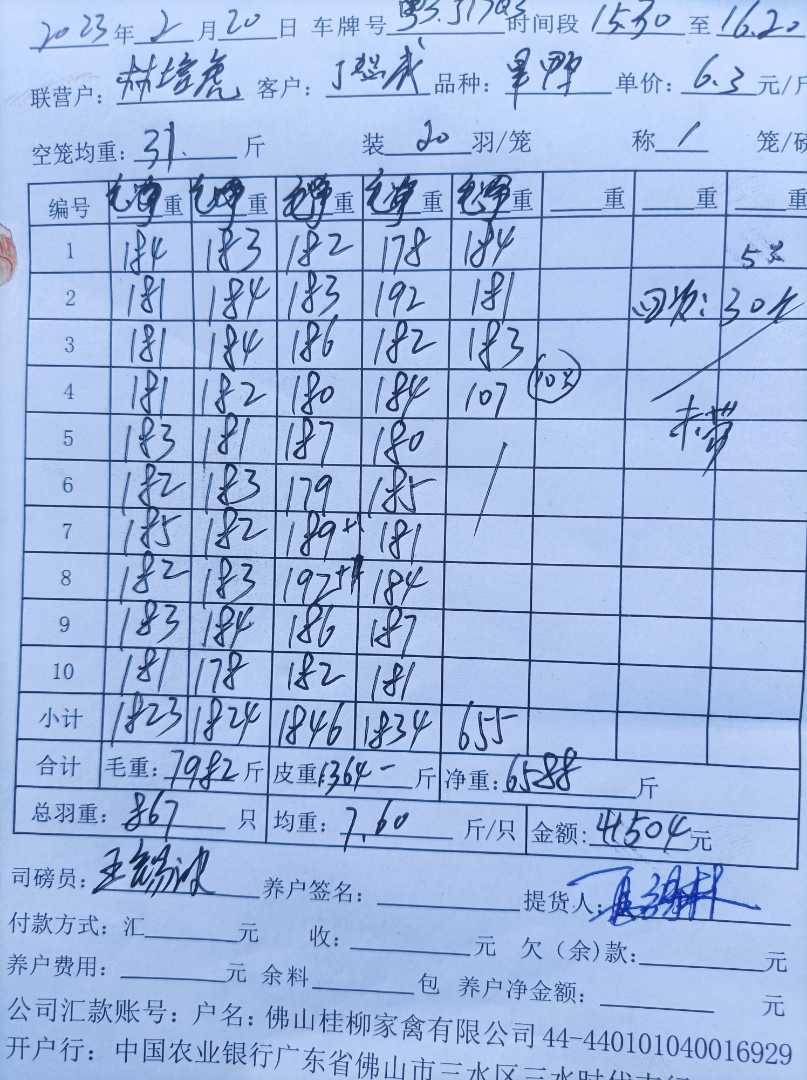 2023年2月20日 车牌号 时间段 15.30 至 16.20
联营户: 林培虎 客户: 品种: 单价: 6.3 元/斤
空笼均重: 31. 斤 装 20 羽/笼 称 1 笼/磅
编号 毛净重 毛净重 毛净重 毛净重 毛净重 重 重 重
1 184 183 182 178 184 5只
2 181 184 183 192 181 30只
3 181 184 186 182 183
4 181 182 180 184 107 10只
5 183 181 187 180
6 182 183 179 185
7 185 182 189+1 181
8 182 183 192 184
9 183 184 186 187
10 181 178 182 181
小计 1823 1824 1846 1834 655
合计 毛重: 7982 斤 皮重: 1364 斤 净重: 6588 斤
总羽重: 867 只 均重: 7.60 斤/只 金额: 41504 元
司磅员: 养户签名: 提货人:
付款方式: 汇 元 收: 元 欠(余)款: 元
养户费用: 元 余料 包 养户净金额: 元
公司汇款账号: 户名: 佛山桂柳家禽有限公司 44-440101040016929
开户行: 中国农业银行广东省佛山市三水区三水时代